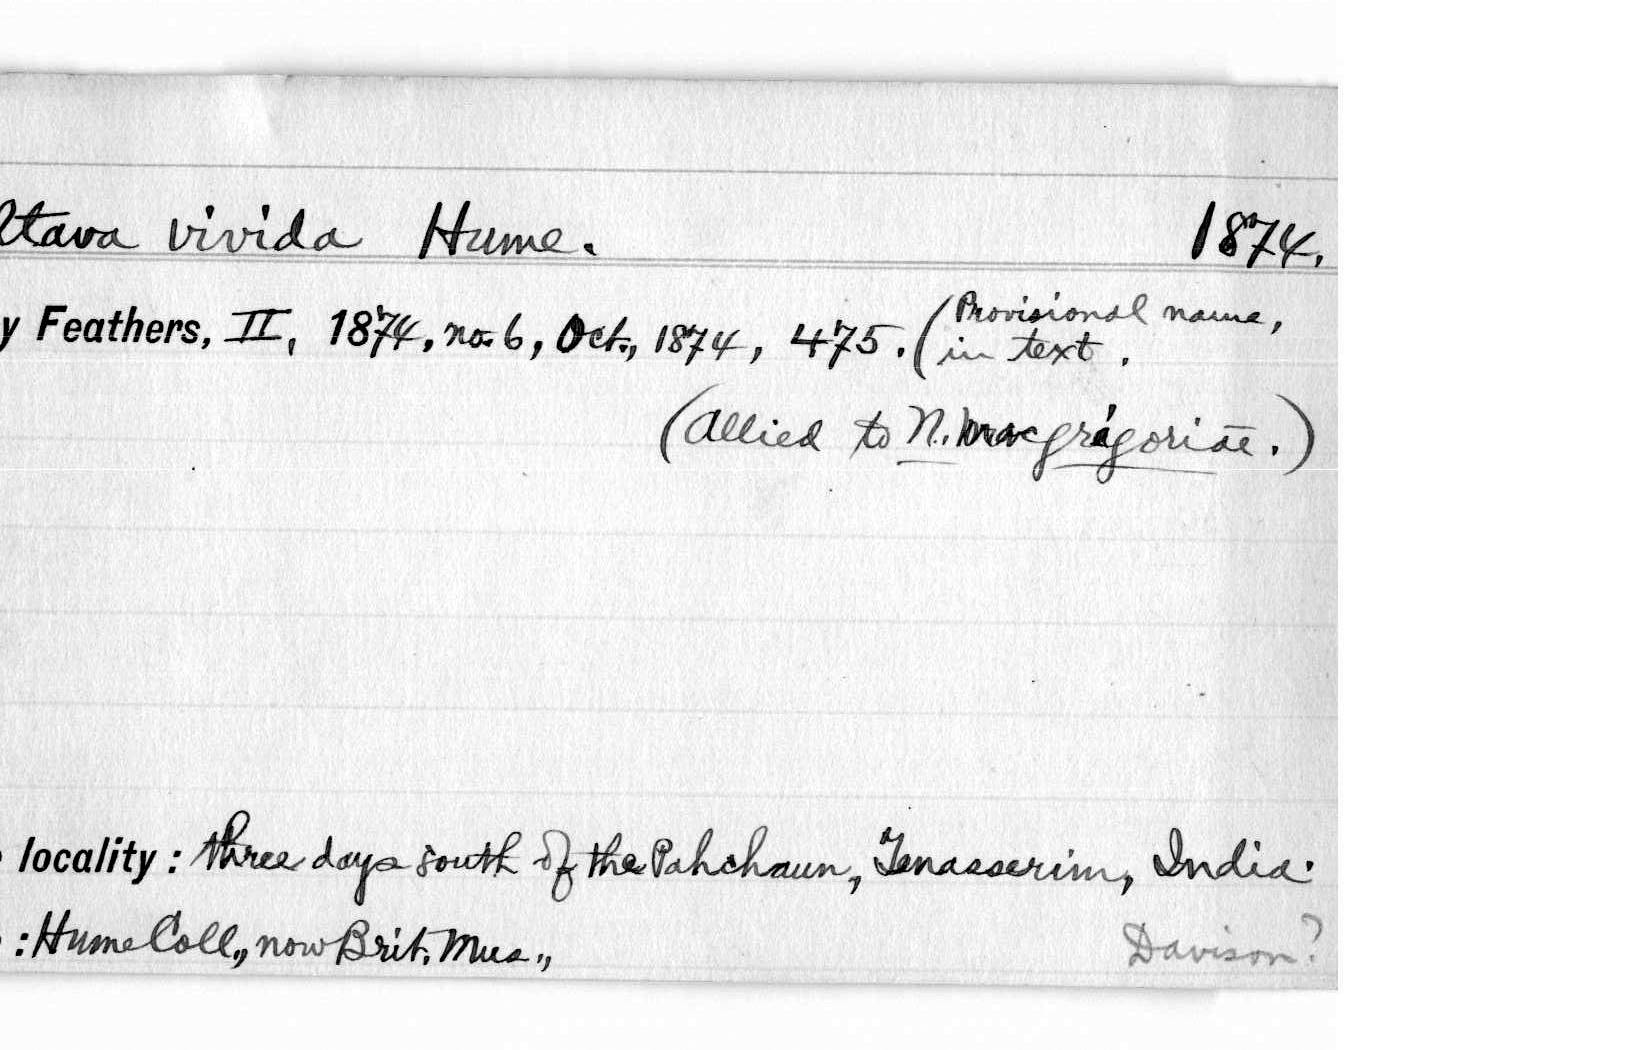 ltava vivida Hume. 1874.
y Feathers, II, 1874, no. 6, Oct., 1874, 475. (Provisional name,
in text.
(Allied to N. macgrigoriae.)
locality: three days south of the Pahchaun, Tenasserim, India.
: Hume Coll., now Brit. Mus.,
Davison?